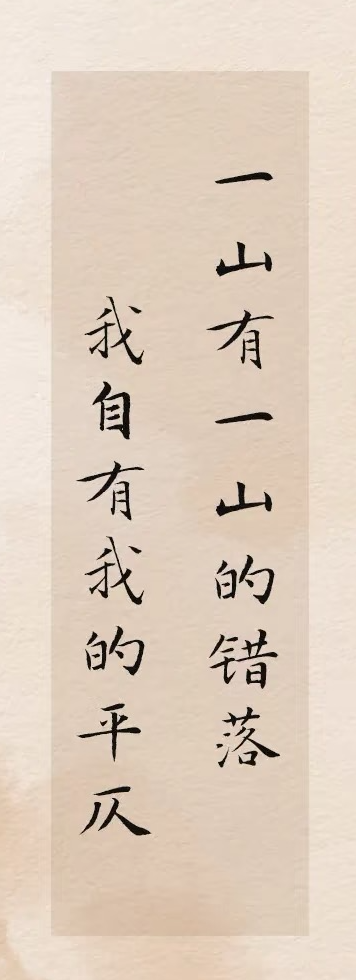 一山有一山的错落
我自有我的平仄